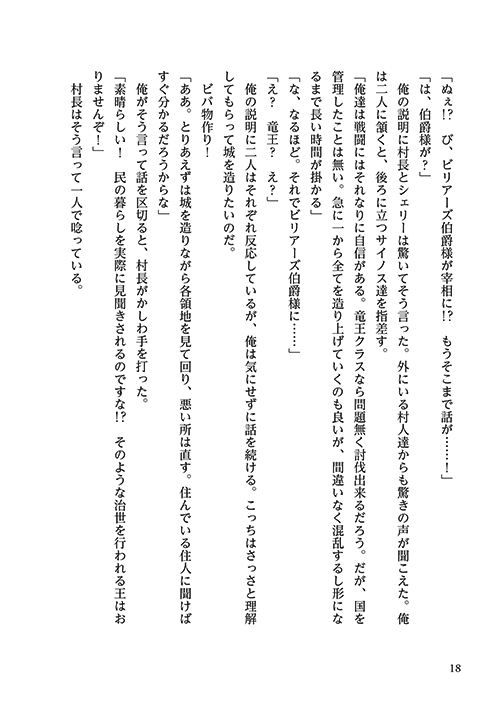 「ぬぇ!?　び、ビリアーズ伯爵様が宰相に!?　もうそこまで話が……！」
「は、伯爵様が？」
　俺の説明に村長とシェリーは驚いてそう言った。外にいる村人達からも驚きの声が聞こえた。俺
は二人に頷くと、後ろに立つサイノス達を指差す。
「俺達は戦闘にはそれなりに自信がある。竜王クラスなら問題無く討伐出来るだろう。だが、国を
管理したことは無い。急に一から全てを造り上げていくのも良いが、間違いなく混乱するし形にな
るまで長い時間が掛かる」
「な、なるほど。それでビリアーズ伯爵様に……」
「え？　竜王？　え？」
　俺の説明に二人はそれぞれ反応しているが、俺は気にせずに話を続ける。こっちはさっさと理解
してもらって城を造りたいのだ。
　ビバ物作り！
「ああ。とりあえずは城を造りながら各領地を見て回り、悪い所は直す。住んでいる住人に聞けば
すぐ分かるだろうからな」
　俺がそう言って話を区切ると、村長がかしわ手を打った。
「素晴らしい！　民の暮らしを実際に見聞きされるのですな!?　そのような治世を行われる王はお
りませんぞ！」
　村長はそう言って一人で唸っている。
18